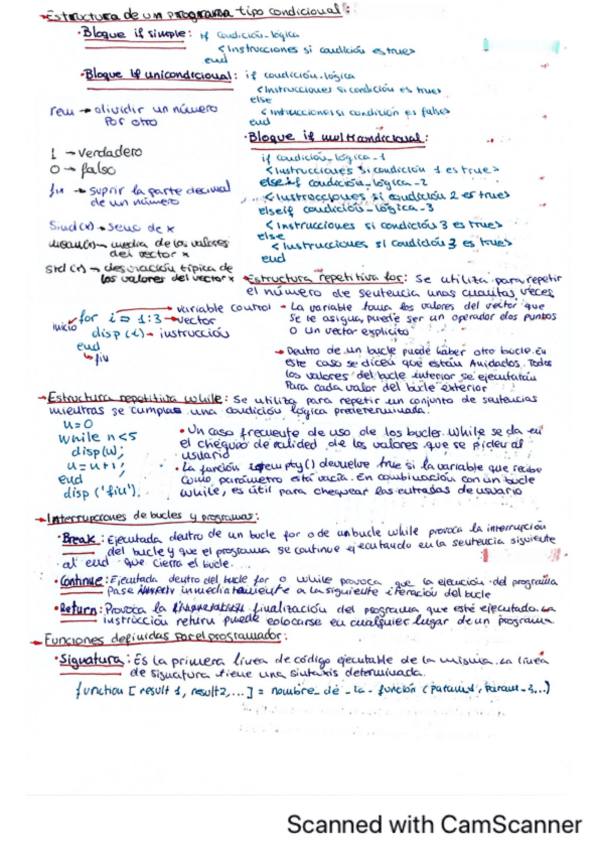 →Estructura de un programa tipo condicional:
·Bloque if simple: if condición-lógica
<Instrucciones si condición es true>
end
·Bloque if unicondicional: if condición-lógica
<Instrucciones si condición es true>
else
<Instrucciones si condición es false>
end
rem → dividir un número
por otro
1 → verdadero
0 → falso
fix → suprir la parte decimal
de un número
Sind(x) → seno de x
mean(x) → media de los valores
del vector x
std(x) → desviación típica de
los valores del vector x
·Bloque if multicondicional:
if condición_lógica-1
<Instrucciones si condición 1 es true>
elseif condición_lógica-2
<Instrucciones si condición 2 es true>
elseif condición_lógica-3
<Instrucciones si condición 3 es true>
else
<Instrucciones si condición 3 es true>
end
→Estructura repetitiva for: Se utiliza para repetir
el número de sentencia unas cuantas veces
variable control
inicio for i = 1:3 → vector
disp(i) → instrucción
end
fin
→ La variable toma los valores del vector que
se le asigna, puede ser un operador dos puntos
o un vector explícito
→ Dentro de un bucle puede haber otro bucle. En
este caso se dice que están Anidados. Todos
los valores del bucle interior se ejecutarán
Para cada valor del bucle exterior
→Estructura repetitiva while: Se utiliza para repetir un conjunto de sentencias
mientras se cumpla una condición lógica predeterminada.
n=0
while n<5
disp(n);
n=n+1;
end
disp('fin').
• Un caso frecuente de uso de los bucles While se da en
el chequeo de validez de los valores que se piden al
usuario
• La función isempty() devuelve true si la variable que recibe
como parámetro está vacía. En combinación con un bucle
While, es útil para chequear las entradas de usuario
→Interrupciones de bucles y programas:
·Break: Ejecutada dentro de un bucle for o de un bucle while provoca la interrupción
del bucle y que el programa se continue ejecutando en la sentencia siguiente
al end que cierra el bucle.
·Continue: Ejecutada dentro del bucle for o while provoca que la ejecución del programa
pase inmediatamente a la siguiente iteración del bucle
·Return: Provoca la finalización del programa que esté ejecutado. La
instrucción return puede colocarse en cualquier lugar de un programa
→Funciones definidas por el programador:
·Signatura: Es la primera línea de código ejecutable de la misma. La línea
de signatura tiene una sintaxis determinada.
function [result1, result2,...] = nombre_de_la_función (Param1, Param-2...)
Scanned with CamScanner